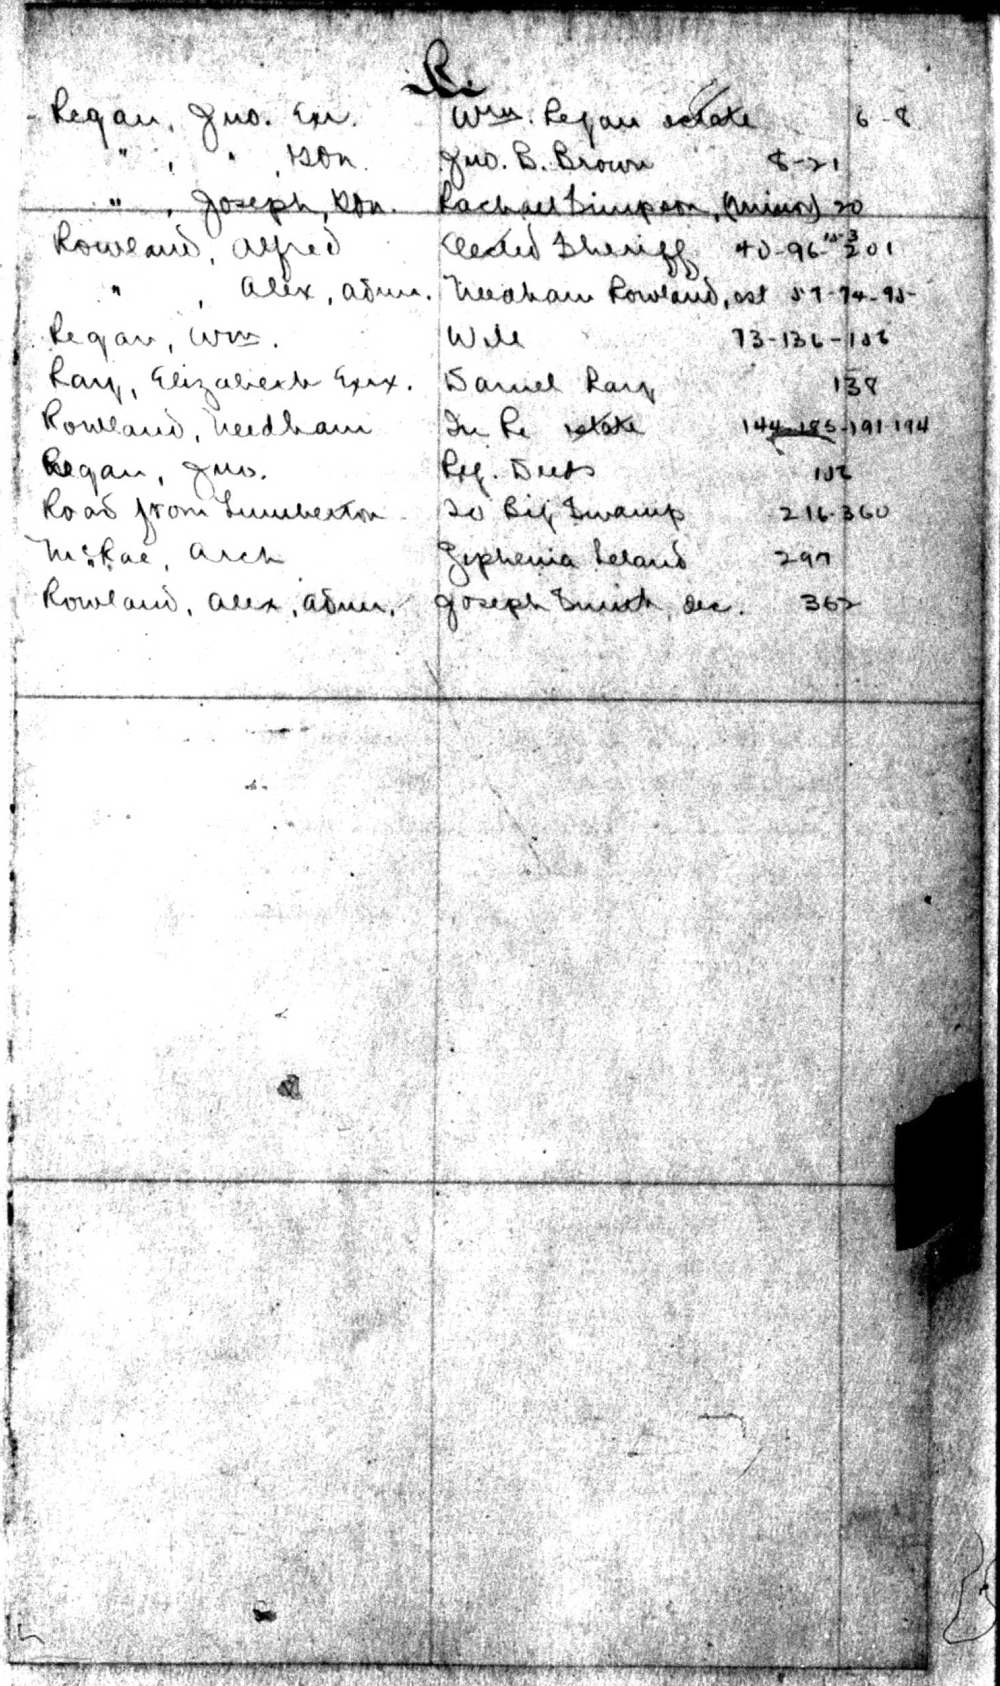 R.
Regan, Jno. Exr. Wm. Regan estate 6-8
" , " , Gdn. Jno. B. Brown 8-21
" , Joseph, Gdn. Rachael Simpson, (minor) 20
Rowland, Alfred Elected Sheriff 40-96- 201
" , Alex, admr. Needham Rowland, est 57-74-95-
Regan, Wm. Will 73-136-
Ray, Elizabeth Exrx. Daniel Ray 138
Rowland, Needham In Re estate 144-185-191-194
Regan, Jno. Reg. Deeds
Road from Lumberton To Big Swamp 216-360
McRae, Arch Leland 297
Rowland, Alex, admr. Joseph Smith, dec. 362